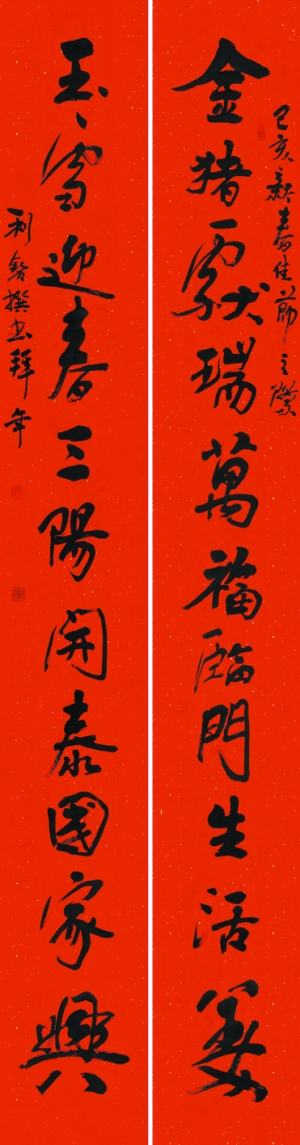 己亥新春佳節之際
金猪獻瑞萬福臨門生活美
玉雪迎春三陽開泰國家興
利撰書拜年